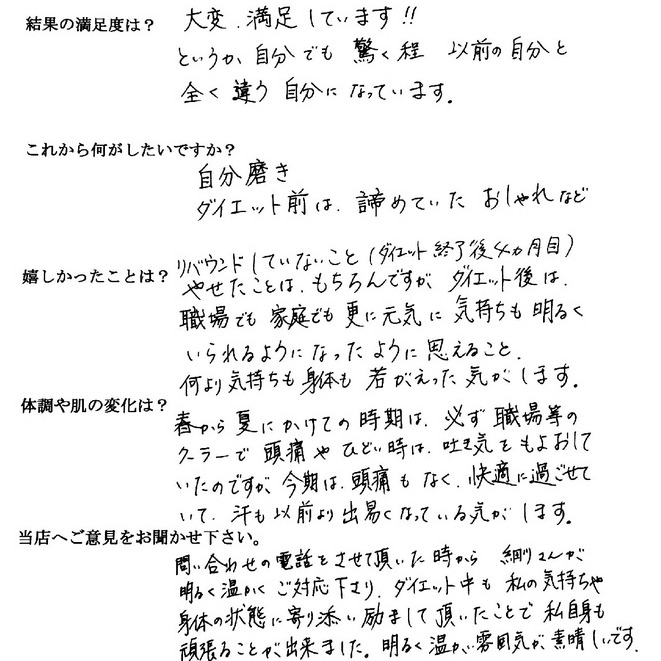 結果の満足度は？
大変、満足しています!!
というか、自分でも 驚く程 以前の自分と
全く違う自分になっています。
これから何がしたいですか？
自分磨き
ダイエット前は、諦めていた おしゃれなど
嬉しかったことは？
リバウンドしていないこと（ダイエット終了後4ヵ月目）
やせたことは、もちろんですが、ダイエット後は、
職場でも 家庭でも 更に元気に 気持ちも 明るく
いられるようになったように思えること、
何より気持ちも 身体も 若がえった気がします。
体調や肌の変化は？
春から夏にかけての時期は、必ず 職場等の
クーラーで 頭痛や ひどい時は、吐き気をもよおして
いたのですが、今期は、頭痛も なく、快適に過ごせて
いて、汗も以前より出易くなっている気がします。
当店へご意見をお聞かせ下さい。
問い合わせの電話をさせて頂いた時から 細川さんが
明るく温かく ご対応下さり、ダイエット中も 私の気持ちや
身体の状態に寄り添い励まして頂いたことで 私自身も
頑張ることが出来ました。明るく温かい雰囲気が素晴しいです。